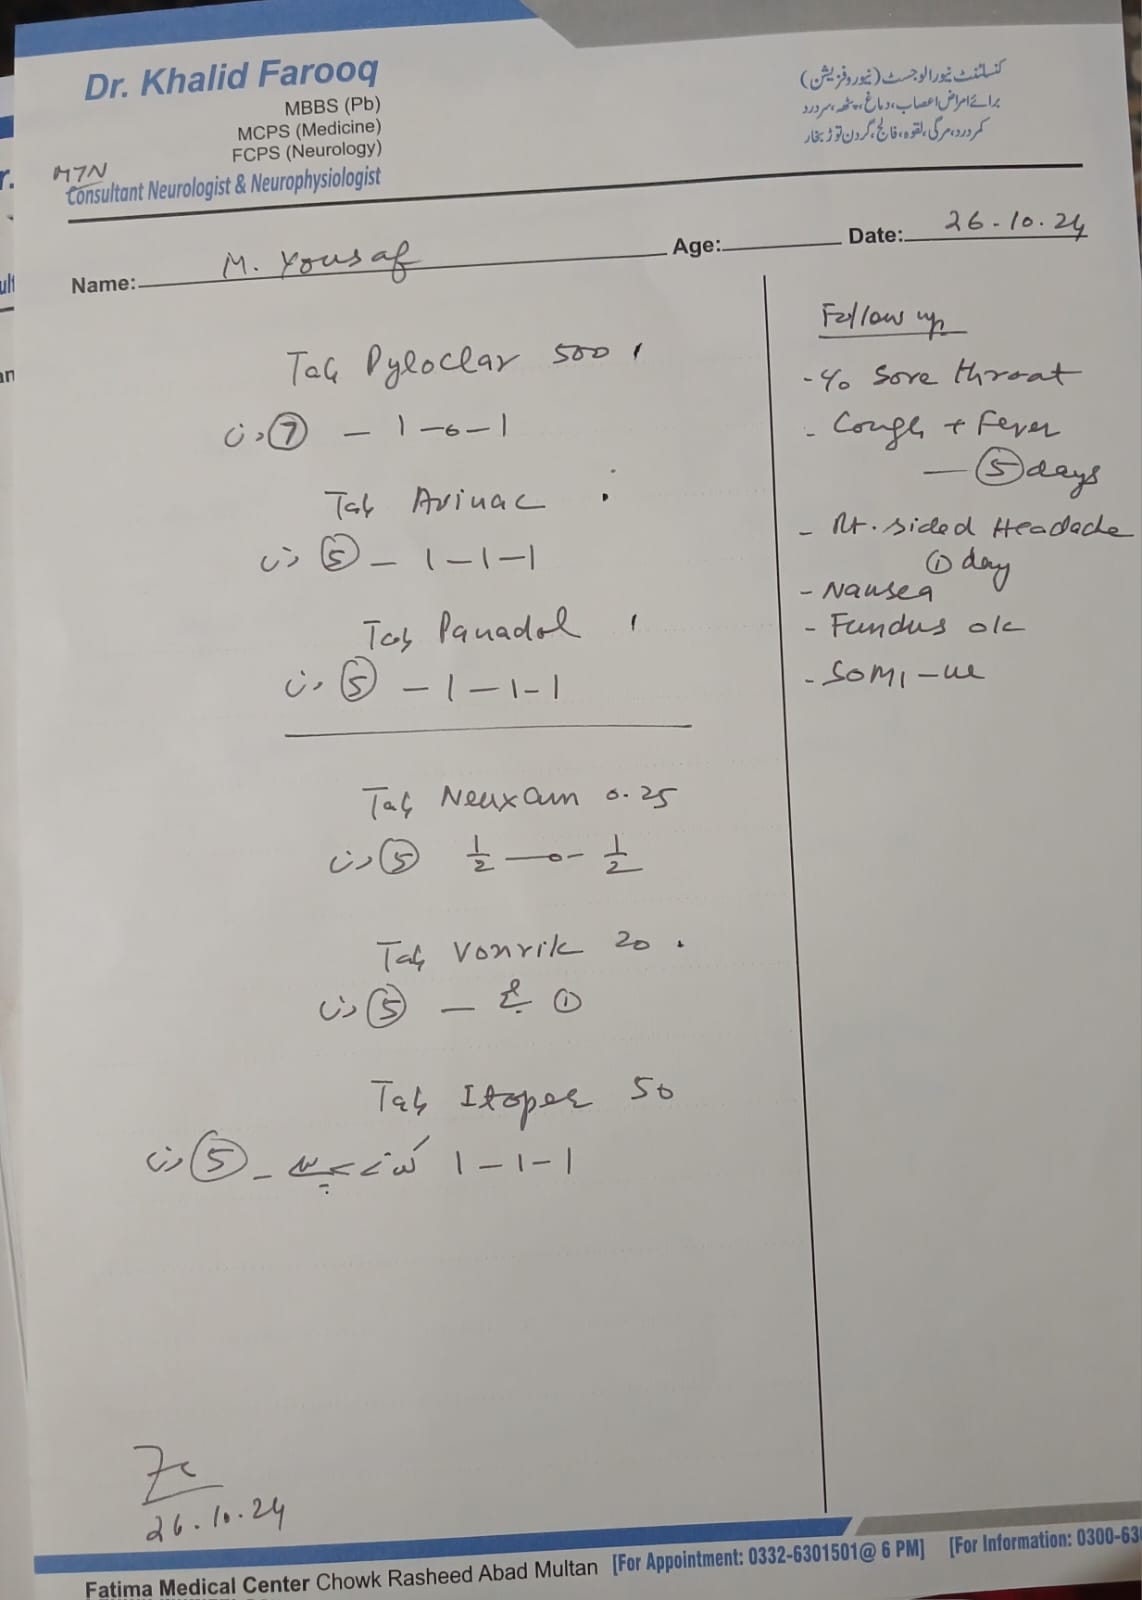 Dr. Khalid Farooq
MBBS (Pb)
MCPS (Medicine)
FCPS (Neurology)
Consultant Neurologist & Neurophysiologist
کنسلٹنٹ نیورالوجسٹ (نیوروفزیشن)
برائے امراض اعصاب، دماغ، پٹھے، سردرد
کمردرد، مرگی، لقوہ، فالج، گردن توڑ بخار
HTN
Name: M. Yousaf Age: Date: 26-10.24
Tab Pyloclar 500
1-0-1 – 7 دن
Tab Avinac
1-1-1 – 5 دن
Tab Panadol
1-1-1 – 5 دن
Tab Neuxam 0.25
½ —0- ½ 5 دن
Tab Vonrik 20
1 صبح – 5 دن
Tab Itoper 50
1-1-1 کھانے سے پہلے – 5 دن
26.10.24
Follow up
- c/o Sore throat
- Cough + Fever
— 5 days
- Rt. sided Headache
1 day
- Nausea
- Fundus ok
- SOMI -ve
Fatima Medical Center Chowk Rasheed Abad Multan [For Appointment: 0332-6301501@ 6 PM] [For Information: 0300-63